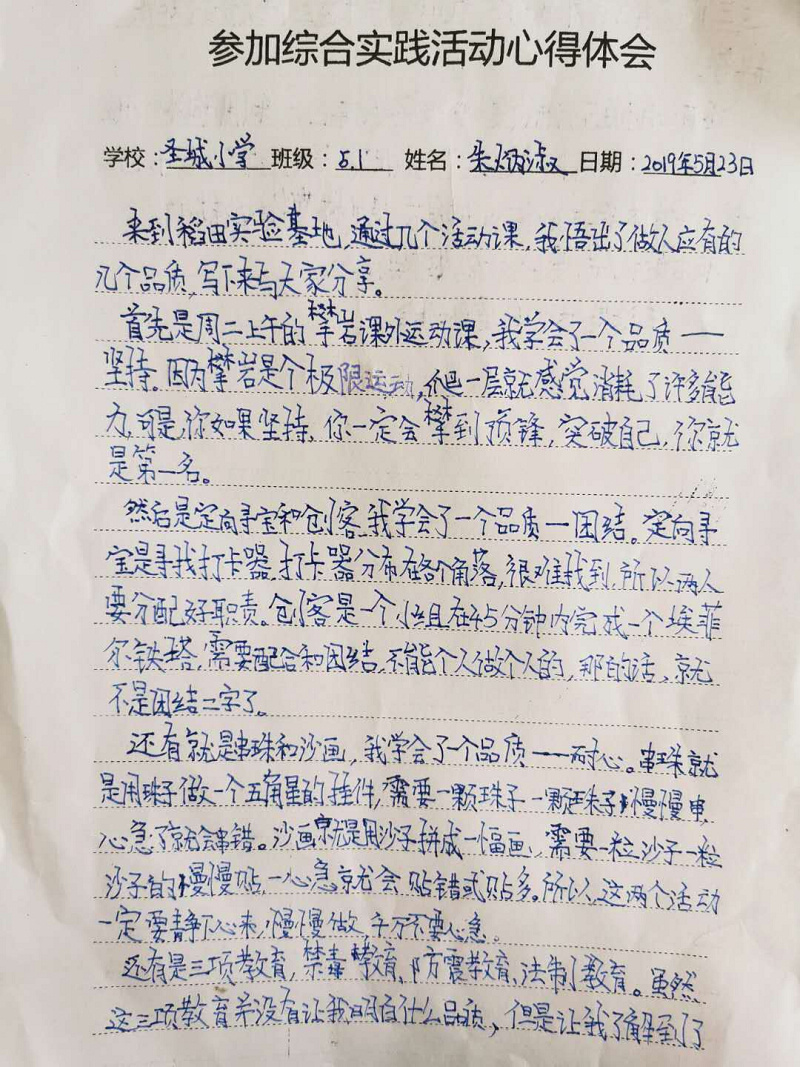 参加综合实践活动心得体会
学校：圣城小学 班级：5.1 姓名：朱炳淑 日期：2019年5月23日
来到稻田实验基地，通过几个活动课，我悟出了做人应有的
几个品质，写下来与大家分享。
首先是周二上午的攀岩课外运动课，我学会了一个品质——
坚持。因为攀岩是个极限运动，爬一层就感觉消耗了许多能
力，可是，你如果坚持，你一定会攀到顶锋，突破自己，你就
是第一名。
然后是定向寻宝和创客，我学会了一个品质—团结。定向寻
宝是寻找打卡器，打卡器分布在各个角落，很难找到，所以两人
要分配好职责。创客是一个小组在45分钟内完成一个埃菲
尔铁塔，需要配合和团结，不能个人做个人的，那的话，就
不是团结二字了。
还有就是串珠和沙画，我学会了一个品质——耐心。串珠就
是用珠子做一个五角星的挂件，需要一颗珠子一颗珠子慢慢串，
心急了就会串错。沙画就是用沙子拼成一幅画，需要一粒沙子一粒
沙子的慢慢贴，一心急就会贴错或贴多。所以，这两个活动
一定要静下心来，慢慢做，千万不要心急。
还有是三项教育，禁毒教育，防震教育，法制教育。虽然
这三项教育并没有让我明白什么品质，但是让我了解到了